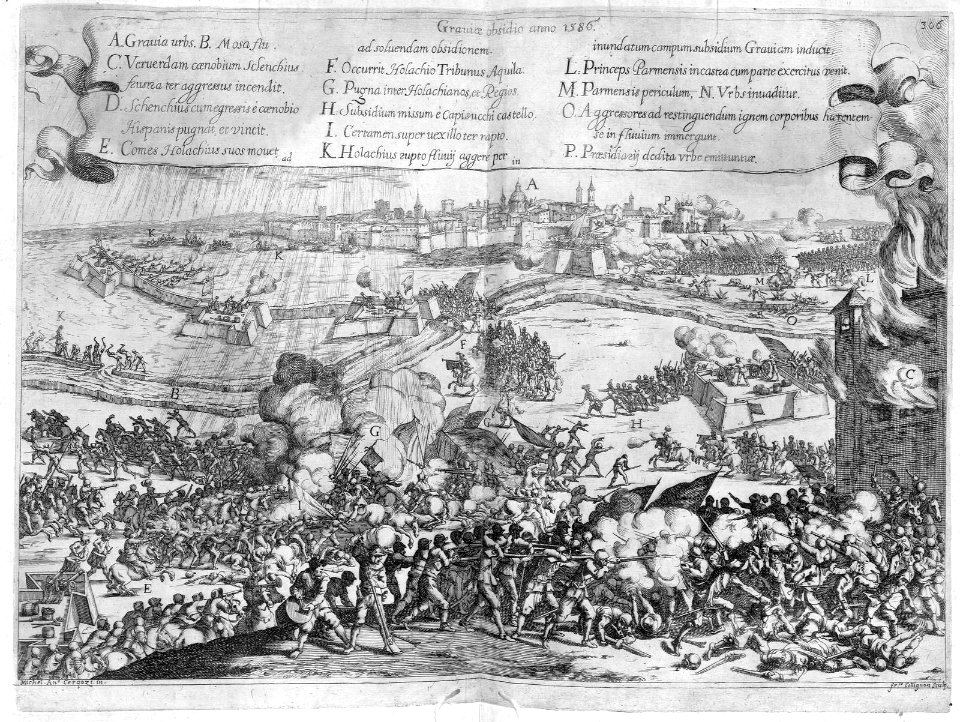 Graviæ obsidio anno 1586.
306
A. Gravia urbs. B. Mosa flu.
C. Veruerdam cœnobium Schenchius
feusrea ter aggressus incendit.
D. Schenchius cum egressis è cœnobio
Hispanis pugnat, et vincit.
E. Comes Holachius suos mouet ad
ad soluendam obsidionem.
F. Occurrit Holachio Tribunus Aquila.
G. Pugna inter Holachianos, et Regios.
H. Subsidium missum è Capisucchi castello.
I. Certamen super uexillo ter rapto.
K. Holachius rupto fluuij aggere per in
inundatum campum subsidium Grauiam inducit.
L. Princeps Parmensis in castra cum parte exercitus uenit.
M. Parmensis periculum, N. Vrbs inuaditur.
O. Aggressores ad restinguendum ignem corporibus hærentem
se in fluuium immergunt.
P. Præsidiarij dedita urbe emittuntur.
A
P
K
K
N
M
L
O
K
F
C
B
H
G
I
E
Michel Anº Cerqozi in.